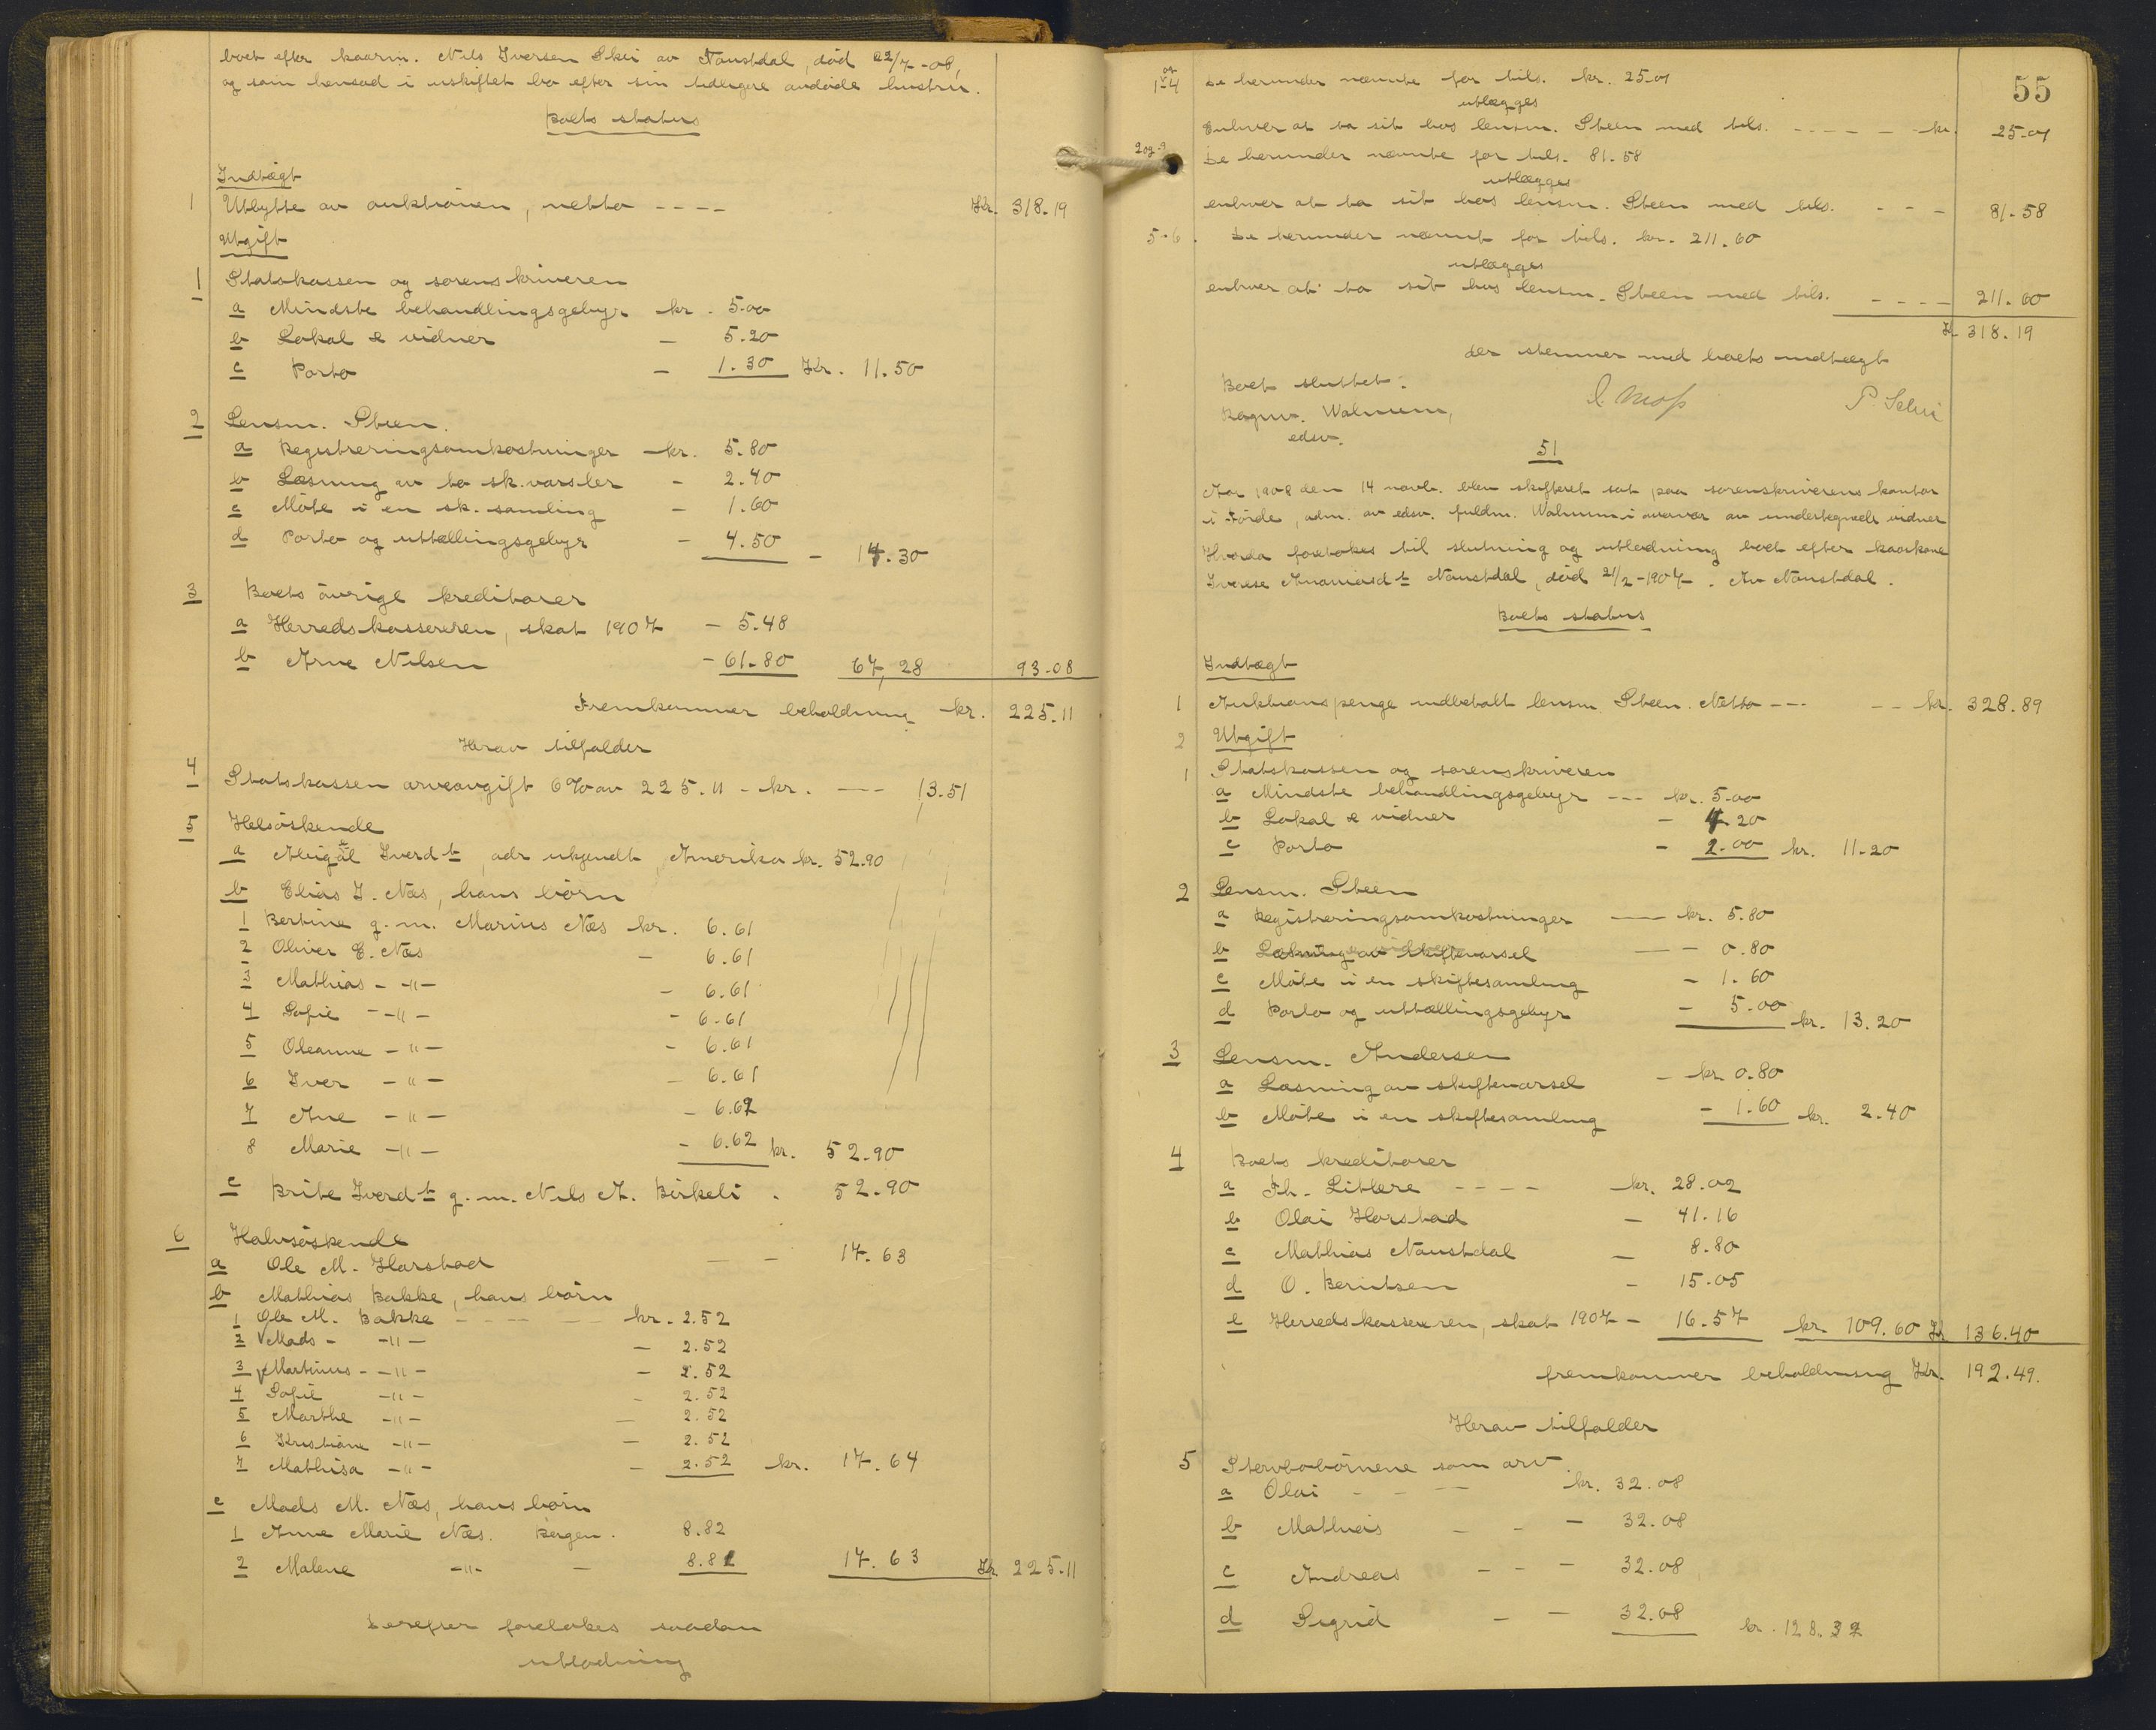 boet efter kaarm. Nils Iversen Skei av Naustdal, död 22/7-08,
og som hensad i uskiftet bo efter sin tidligere avdöde hustru.
Boets status
Indtægt
1 Utbytte av auktionen, netto ---- Kr. 318.19
Utgift
1 Statskassen og sorenskriveren
a Mindste behandlingsgebyr kr. 5.00
b Lokal & vidner - 5.20
c Porto - 1.30 Kr. 11.50
2 Lensm. Steen.
a Registreringsomkostninger - kr. 5.80
b Læsning av to sk.varsler - 2.40
c Möte i en sk. samling - 1.60
d Porto og uttællingsgebyr - 4.50 - 14.30
3 Boets övrige kreditorer
a Herredskassereren, skat 1907 - 5.48
b Arne Nilsen - 61.80 67,28 93.08
Fremkommer beholdning kr. 225.11
Herav tilfalder
4 Statskassen arveavgift 6% av 225.11 - kr. --- 13.51
5 Helsöskende
a Abigael Iverd t, adr. ukjendt, Amerika kr. 52.90
b Elias I. Næs, hans börn
1 Bertine g. m. Marius Næs kr. 6.61
2 Oliver E. Næs - 6.61
3 Mathias - -"- - 6.61
4 Sofie - -"- - 6.61
5 Oleanne - "- - 6.61
6 Iver - "- - 6.61
7 Ane - "- - 6.62
8 Marie -"- - 6.62 kr. 52.90
c Brite Iverd t g. m. Nils A. Birkeli . 52.90
6 Halvsöskende
a Ole M. Harstad - - 17.63
b Mathias Bakke, hans börn
1 Ole M. Bakke - - - - kr. 2.52
2 Mads - -"- - 2.52
3 Martinus - -"- - 2.52
4 Sofie -"- - 2.52
5 Marthe -"- - 2.52
6 Kristiane -"- - 2.52
7 Mathisa -"- - 2.52 kr. 17.64
c Mads M. Næs, hans börn
1 Anne Marie Næs. Bergen. 8.82
2 Malene -"- - 8.81 17.63 Kr. 225.11
Derefter foretokes saadan
utlodning
55
1 og 4 De herunder nævnte for tils. kr. 25.01
utlægges
Enhver at ta sit hos lensm. Steen med tils. ----- kr. 25.01
2 og 3 De herunder nævnte for tils. 81.58
utlægges
enhver at ta sit hos lensm. Steen med tils. - - - 81.58
5-6. De herunder nævnt for tils. kr. 211.60
utlægges
enhver at ta sit hos lensm. Steen med tils. ---- 211.60
Kr. 318.19
der stemmer med boets indtægt
Boet sluttet.
Ragnv. Walnum,
edsv.
51
Aar 1908 den 14 novb. blev skifteret sat paa sorenskriverens kontor
i Förde, adm. av edsv. fuldm. Walnum i overvær av undertegnede vidner
Hvorda foretokes til slutning og utlodning boet efter kaarkone
Iverse Ananiasd t Naustdal, död 21/2-1907. Av Naustdal.
Boets status
Indtægt
1 Auktionspenge indbetalt lensm. Steen. Netto --- -- kr. 328.89
2 Utgift
1 Statskassen og sorenskriveren
a Mindste behandlingsgebyr --- kr. 5.00
b Lokal & vidner - 4.20
c Porto - 2.00 kr. 11.20
2 Lensm. Steen
a Registreringsomkostninger --- kr. 5.80
b Læsning av skiftevarsel --- 0.80
c Möte i en skiftesamling - 1.60
d Porto og uttællingsgebyr - 5.00 kr. 13.20
3 Lensm. Andersen
a Læsning av skiftevarsel - kr. 0.80
b Möte i en skiftesamling - 1.60 kr. 2.40
4 Boets kreditorer
a Th. Littere ---- kr. 28.02
b Olai Horstad - 41.16
c Mathias Naustdal - 8.80
d O. Berntsen - 15.05
e Herredskassereren, skat 1907 - 16.57 kr. 109.60 Kr. 136.40
fremkommer beholdning Kr. 192.49.
Herav tilfalder
5 Stervbobörnene som arv
a Olai - - - kr. 32.08
b Mathias - - - 32.08
c Andreas - - - 32.08
d Sigrid - - 32.08 kr. 128.32